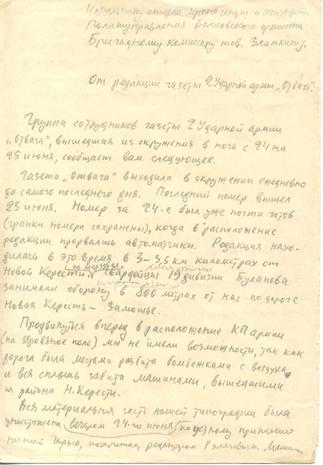 Начальнику отдела пропаганды и агитации
Политуправления Волховского фронта
Бригадному комиссару тов. Златкину.
От редакции газеты 2 Ударной армии „Отвага".
Группа сотрудников газеты 2 Ударной армии
„Отвага", вышедшая из окружения в ночь с 24 на
25 июня, сообщает вам следующее.
Газета „Отвага" выходила в окружении ежедневно
до самого последнего дня. Последний номер вышел
23 июня. Номер за 24-е был уже почти готов
(гранки номера сохранены), когда в расположение
редакции прорвались автоматчики. Редакция нахо-
дилась в это время в 3-3,5 километрах от
Новой Керести. гвардейцы 19 дивизии Буланова
занимали оборону в 800 метрах от нас по дороге
Новая Кересть - Замошье.
Продвинуться вперед в расположение КП армии
(на Дровяное поле) мы не имели возможности, так как
дорога была местами разбита бомбежками с воздуха
и вся сплошь забита машинами, вышедшими
из района Н. Керести.
Вся материальная часть нашей типографии была
уничтожена вечером 24-го июня по устному